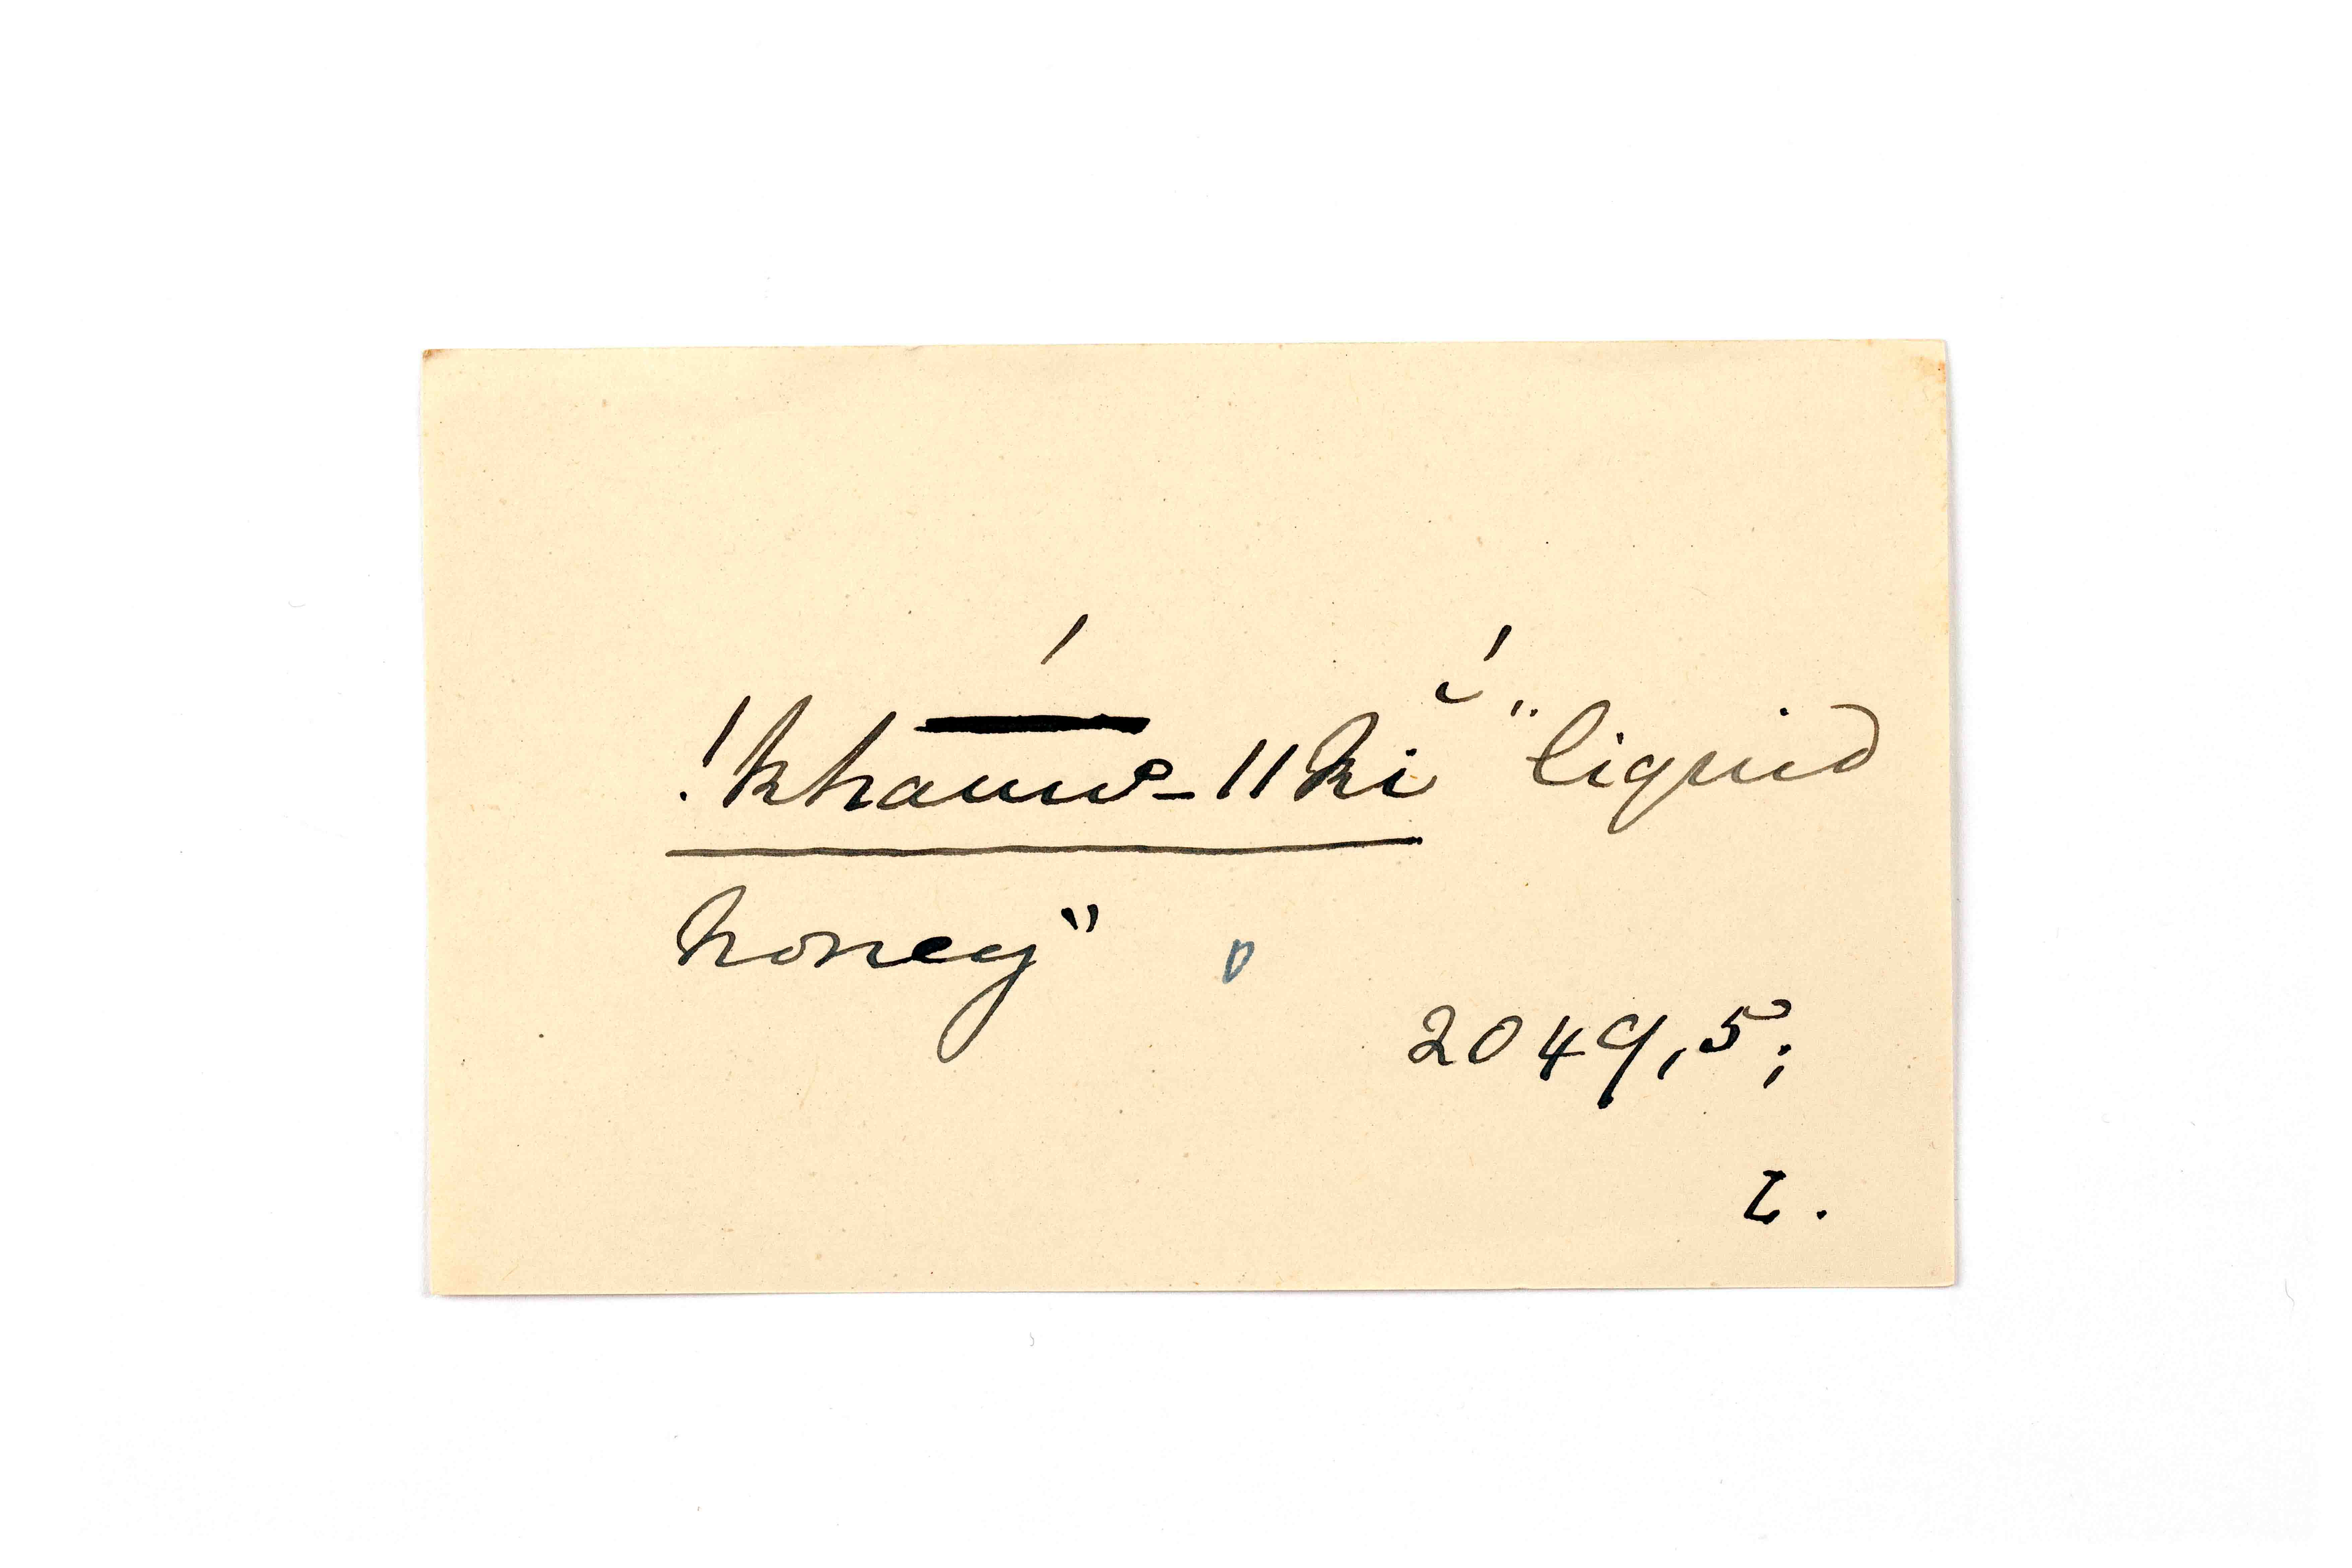 !khauwa-ǁki "liquid
honey"
2049,5;
L.